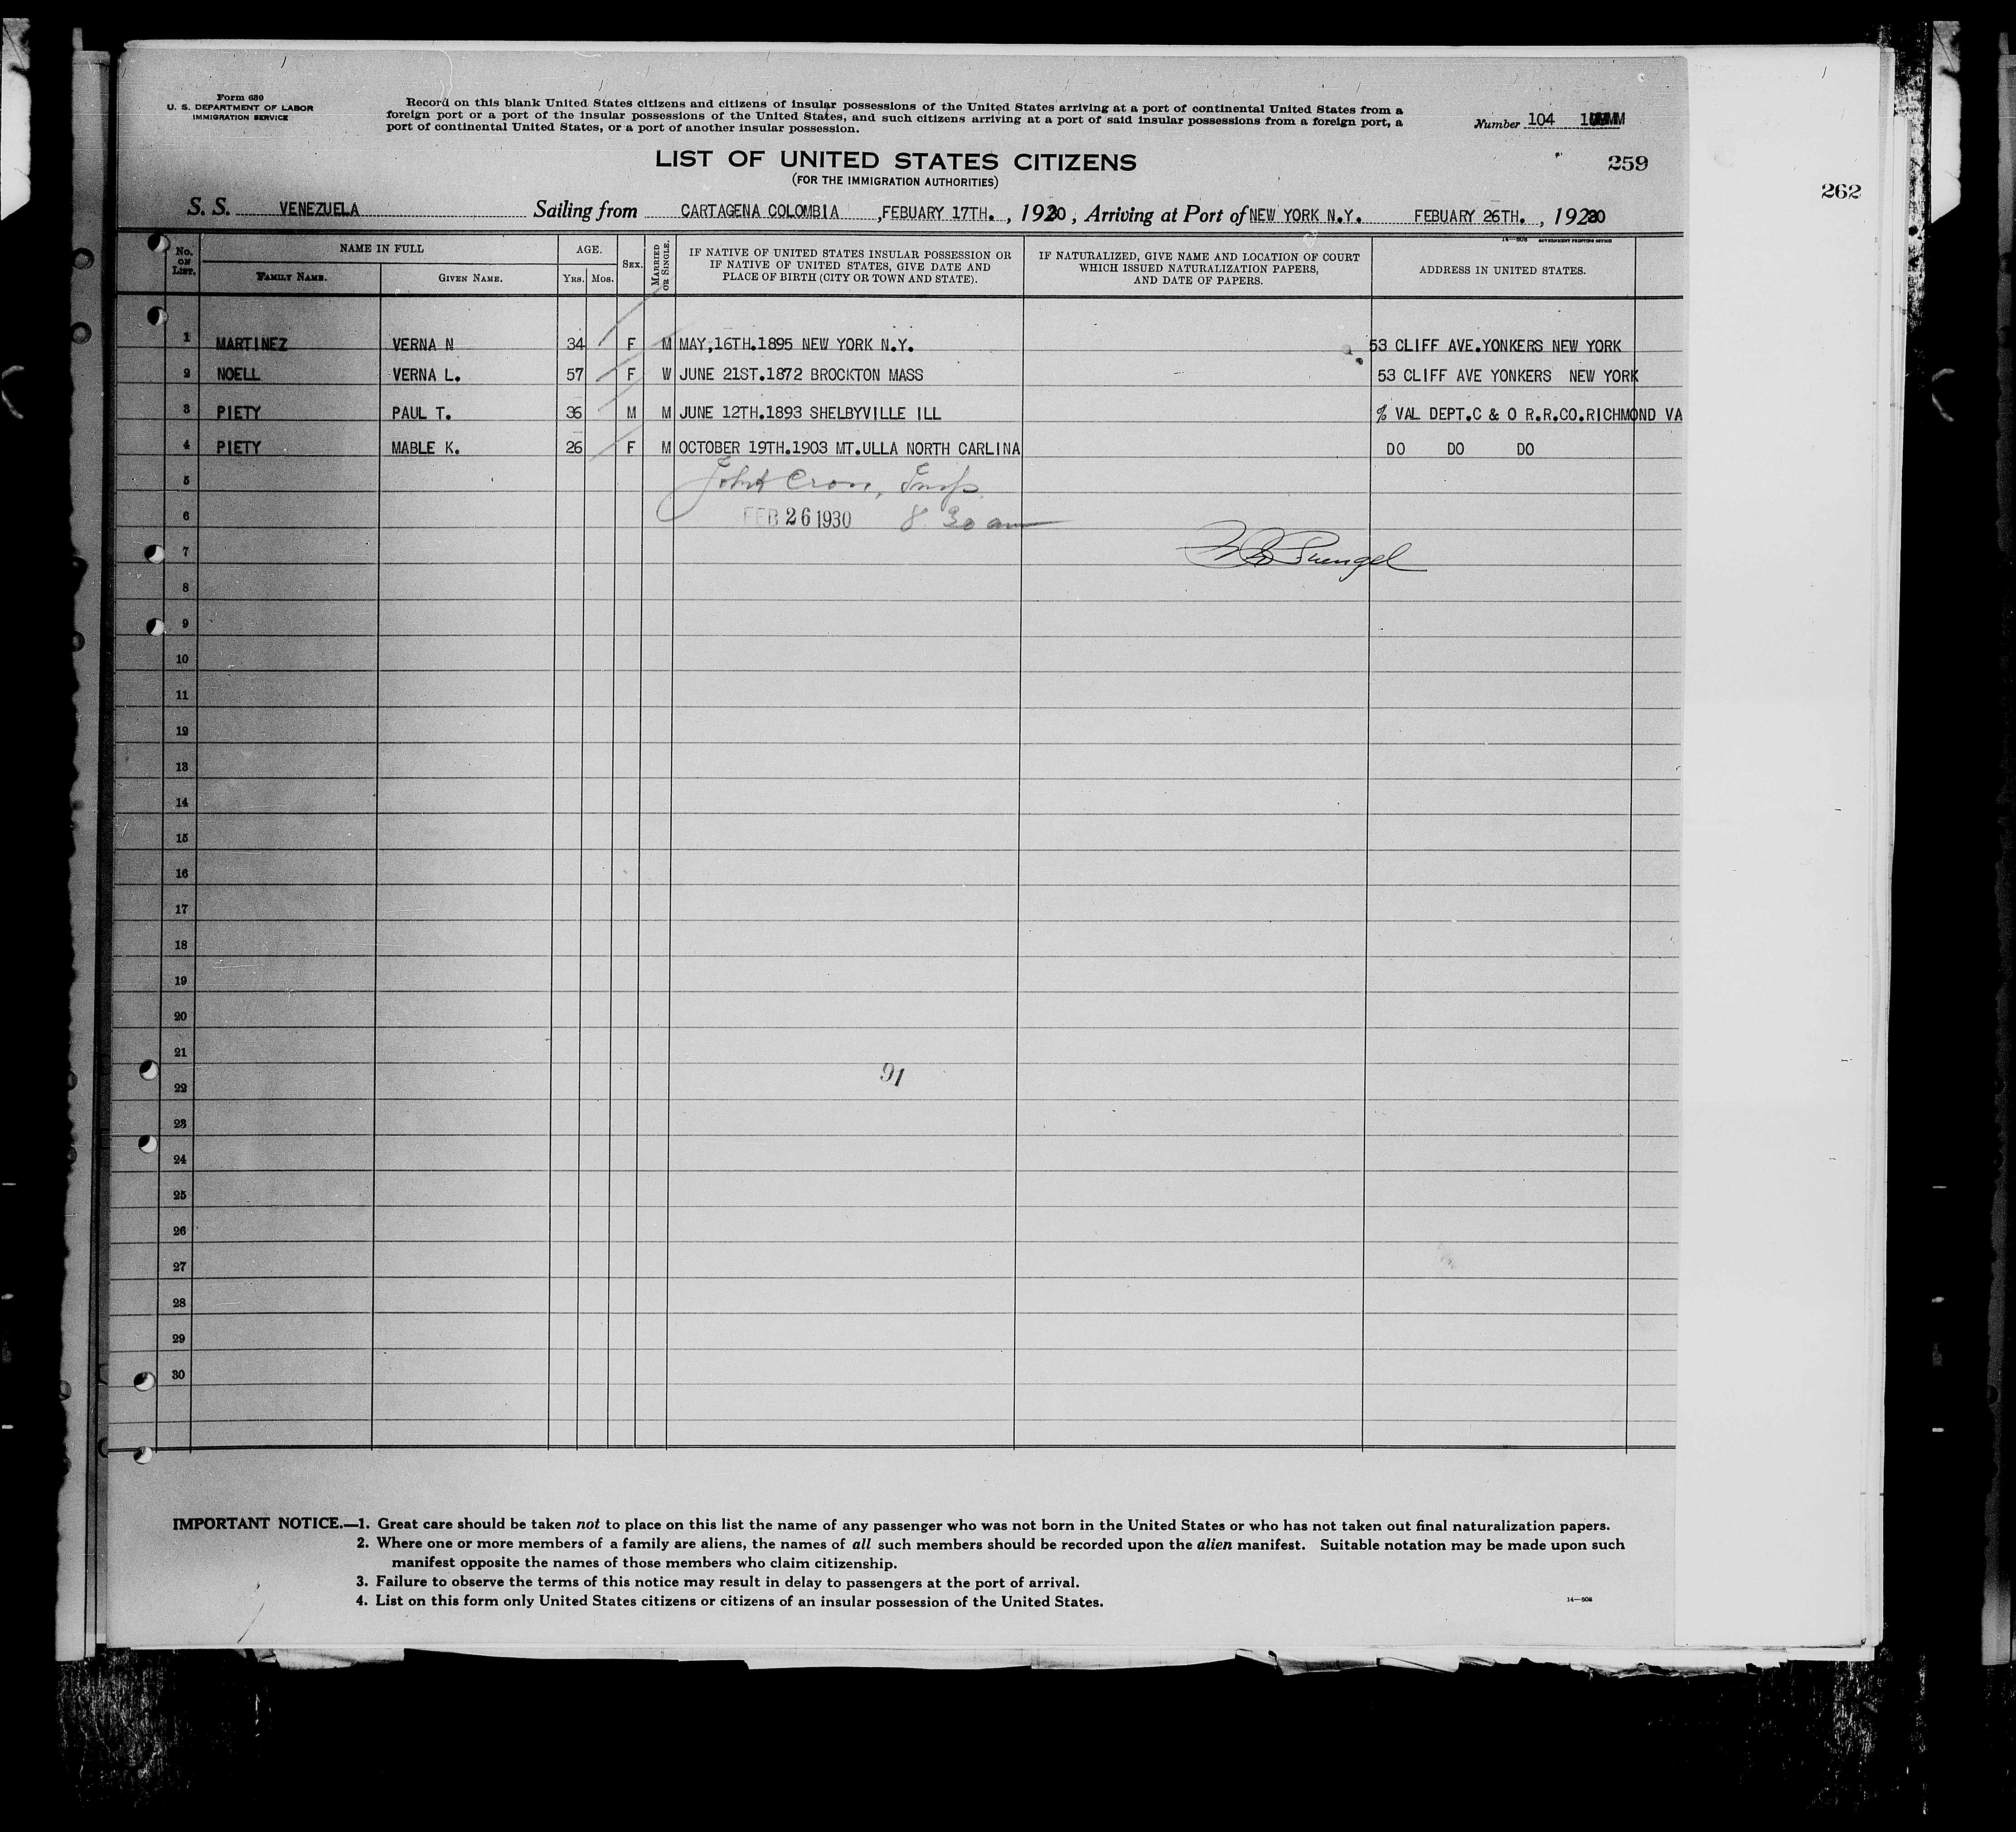 Form 630
U. S. DEPARTMENT OF LABOR
IMMIGRATION SERVICE
Record on this blank United States citizens and citizens of insular possessions of the United States arriving at a port of continental United States from a
foreign port or a port of the insular possessions of the United States, and such citizens arriving at a port of said insular possessions from a foreign port, a
port of continental United States, or a port of another insular possession.
Number 104
LIST OF UNITED STATES CITIZENS
(FOR THE IMMIGRATION AUTHORITIES)
259
262
S. S. VENEZUELA Sailing from CARTAGENA COLOMBIA ,FEBUARY 17TH. , 1930 , Arriving at Port of NEW YORK N.Y. FEBUARY 26TH. , 1930
14—508 GOVERNMENT PRINTING OFFICE
No. ON LIST. NAME IN FULL FAMILY NAME. GIVEN NAME. AGE. YRS. MOS. SEX. MARRIED OR SINGLE. IF NATIVE OF UNITED STATES INSULAR POSSESSION OR IF NATIVE OF UNITED STATES, GIVE DATE AND PLACE OF BIRTH (CITY OR TOWN AND STATE). IF NATURALIZED, GIVE NAME AND LOCATION OF COURT WHICH ISSUED NATURALIZATION PAPERS, AND DATE OF PAPERS. ADDRESS IN UNITED STATES.
1 MARTINEZ VERNA N 34 F M MAY,16TH.1895 NEW YORK N.Y. 53 CLIFF AVE.YONKERS NEW YORK
2 NOELL VERNA L. 57 F W JUNE 21ST.1872 BROCKTON MASS 53 CLIFF AVE YONKERS NEW YORK
3 PIETY PAUL T. 36 M M JUNE 12TH.1893 SHELBYVILLE ILL % VAL DEPT.C & O R.R.CO.RICHMOND VA
4 PIETY MABLE K. 26 F M OCTOBER 19TH.1903 MT.ULLA NORTH CARLINA DO DO DO
5 Insp.
6 FEB 26 1930 8 30 am
7
8
9
10
11
12
13
14
15
16
17
18
19
20
21
91
22
23
24
25
26
27
28
29
30
IMPORTANT NOTICE.—1. Great care should be taken not to place on this list the name of any passenger who was not born in the United States or who has not taken out final naturalization papers.
2. Where one or more members of a family are aliens, the names of all such members should be recorded upon the alien manifest. Suitable notation may be made upon such
manifest opposite the names of those members who claim citizenship.
3. Failure to observe the terms of this notice may result in delay to passengers at the port of arrival.
4. List on this form only United States citizens or citizens of an insular possession of the United States.
14—508